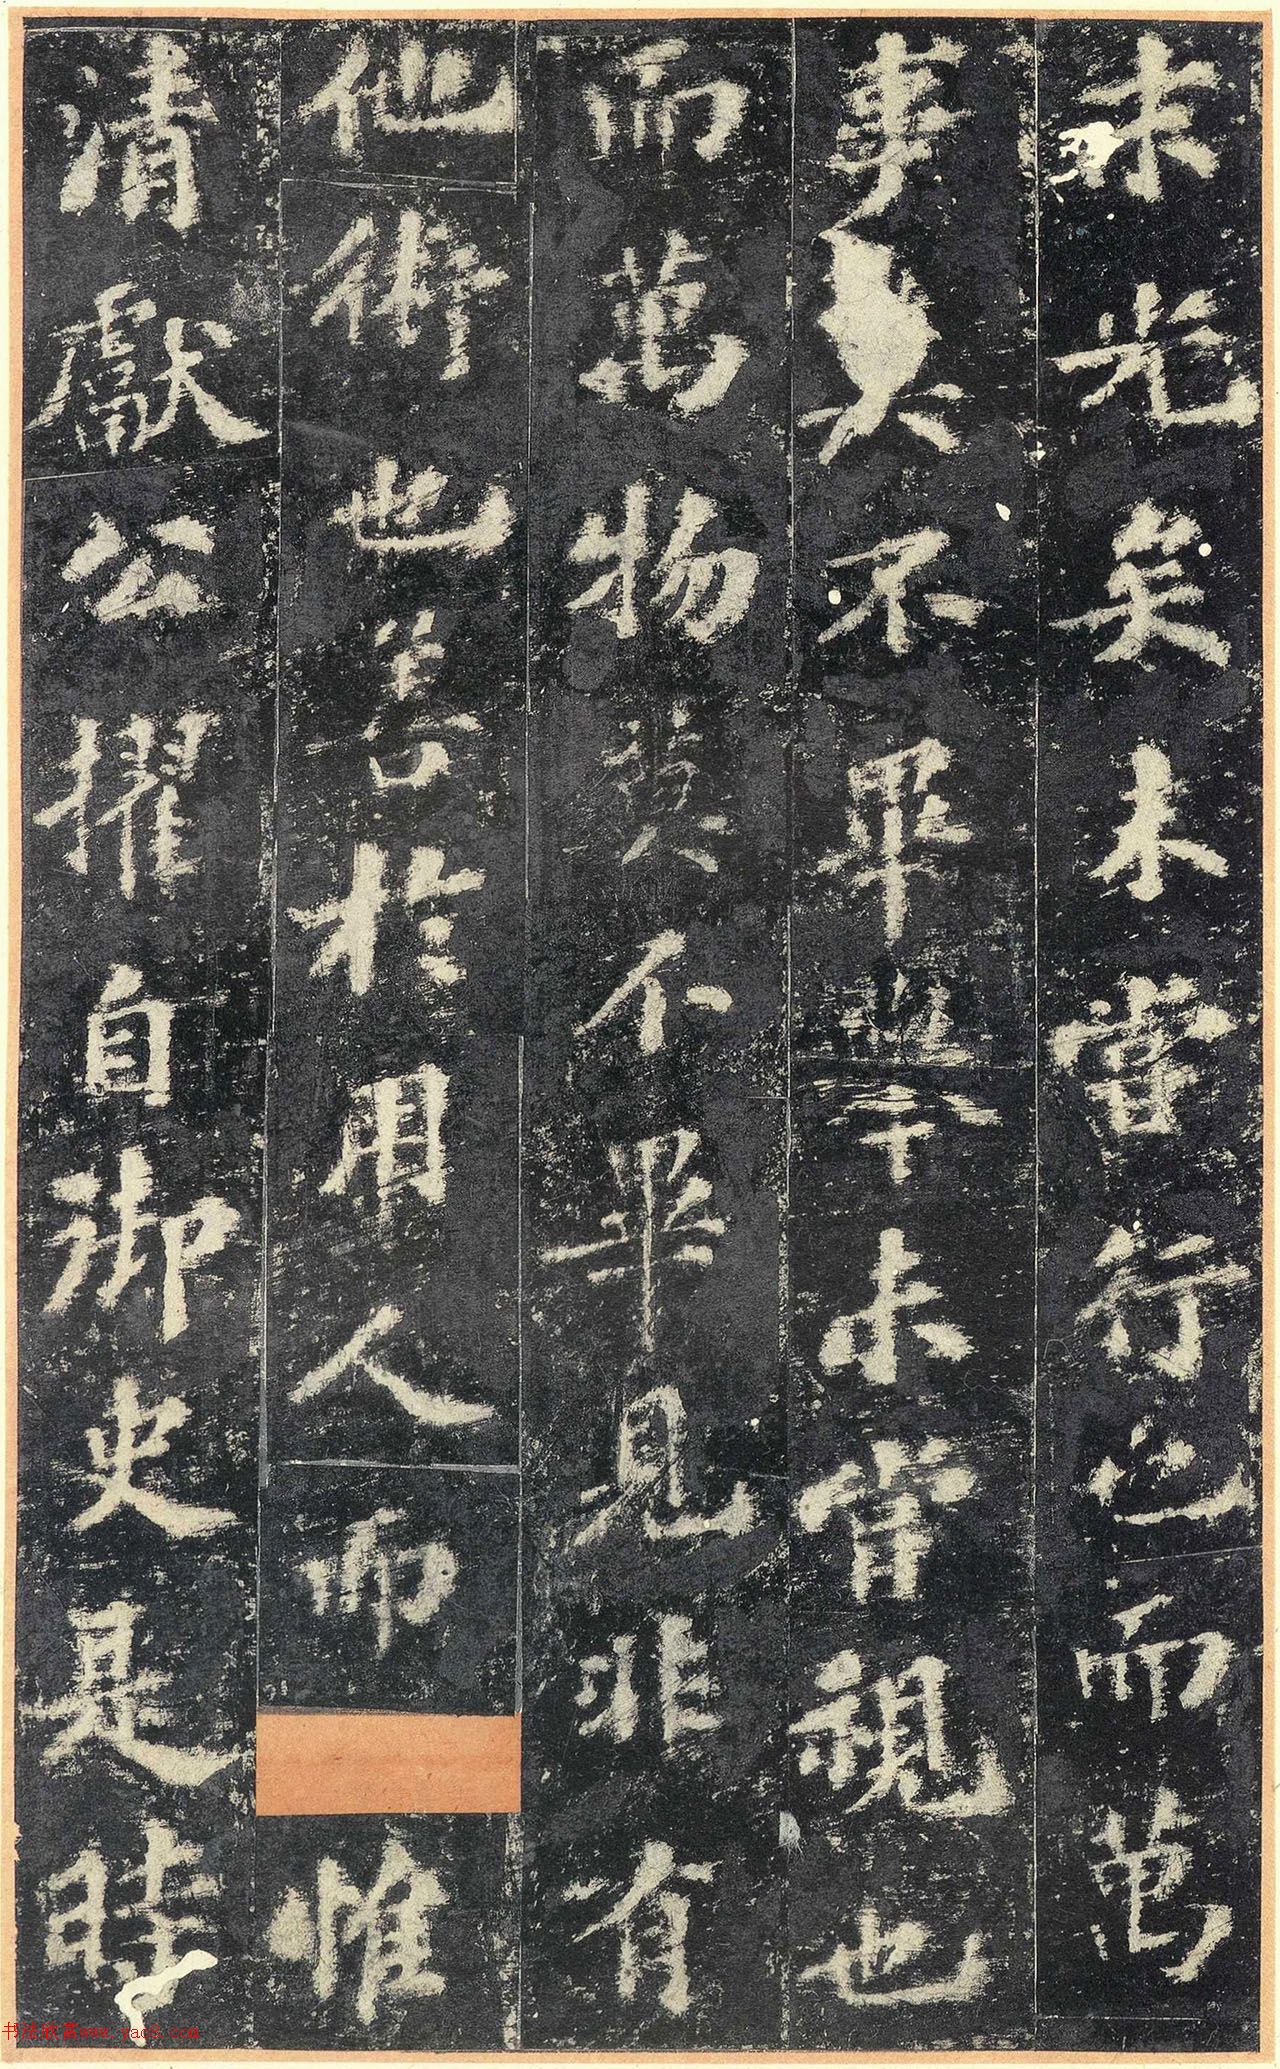 末光矣未嘗行也而萬
事莫不畢舉未嘗視也
而萬物莫不畢見非有
他術也善於用人而惟
清獻公擢自御史是時
书法欣赏www.yac8.com